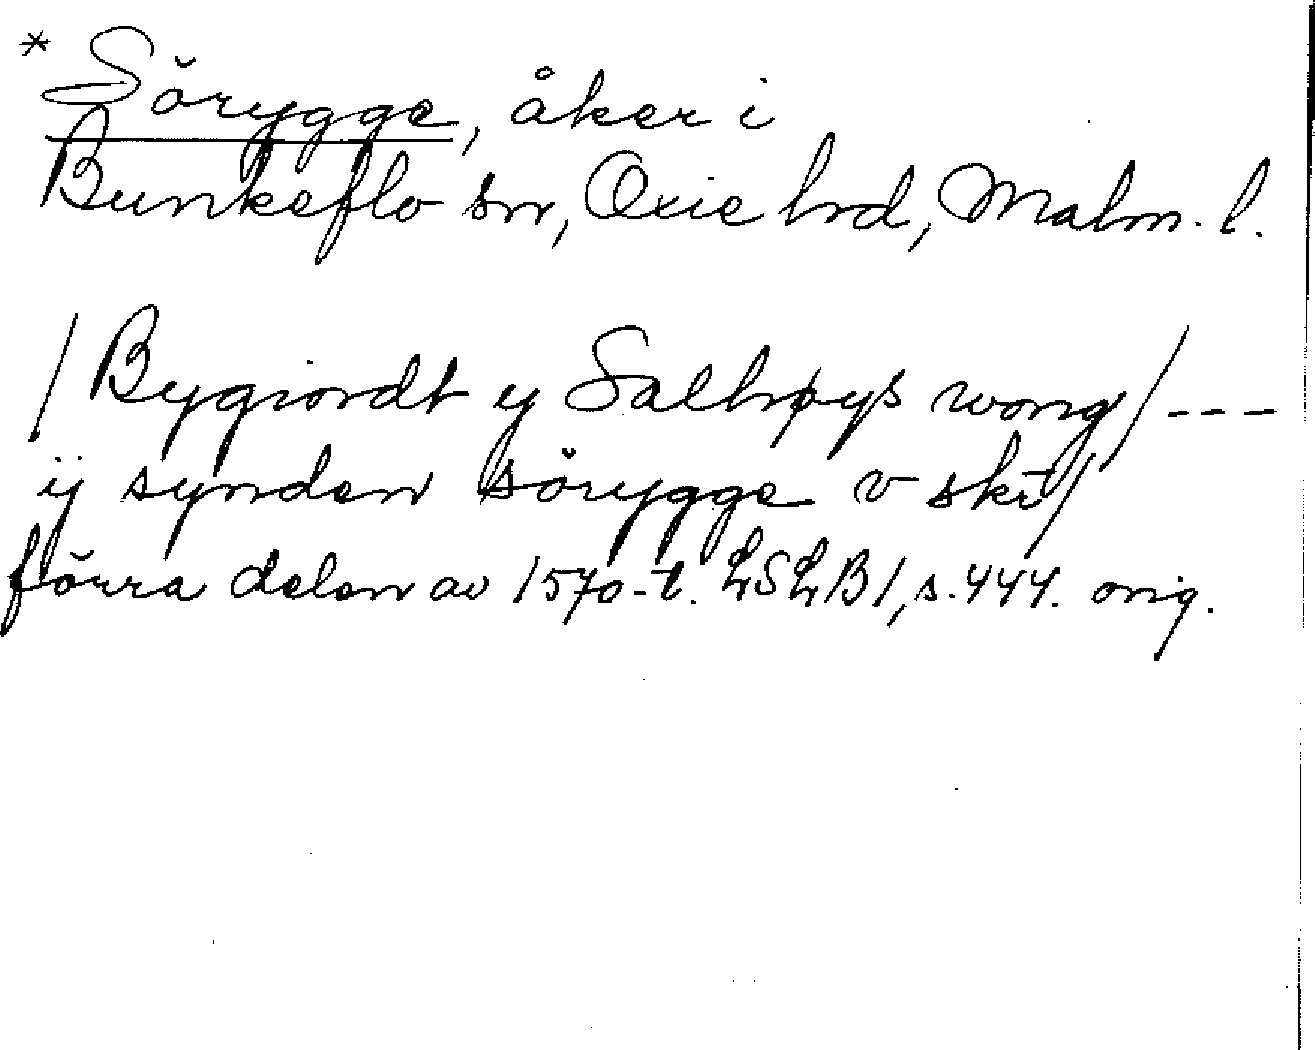 * Sörygge, åker i
Bunkeflo sn, Oxie hrd, Malm. l.
/ Bygiordt y Salhøys wong / ---
ij synden sörygge v sk /
förra delen av 1570-t. LSLB 1, s. 444. orig.